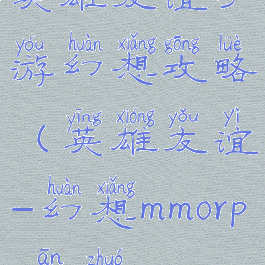 yóu huàn xiǎng gōng lüè
游幻想攻略
yīng xióng yǒu yì
（英雄友谊
huàn xiǎng
-幻想mmorp
ān zhuó